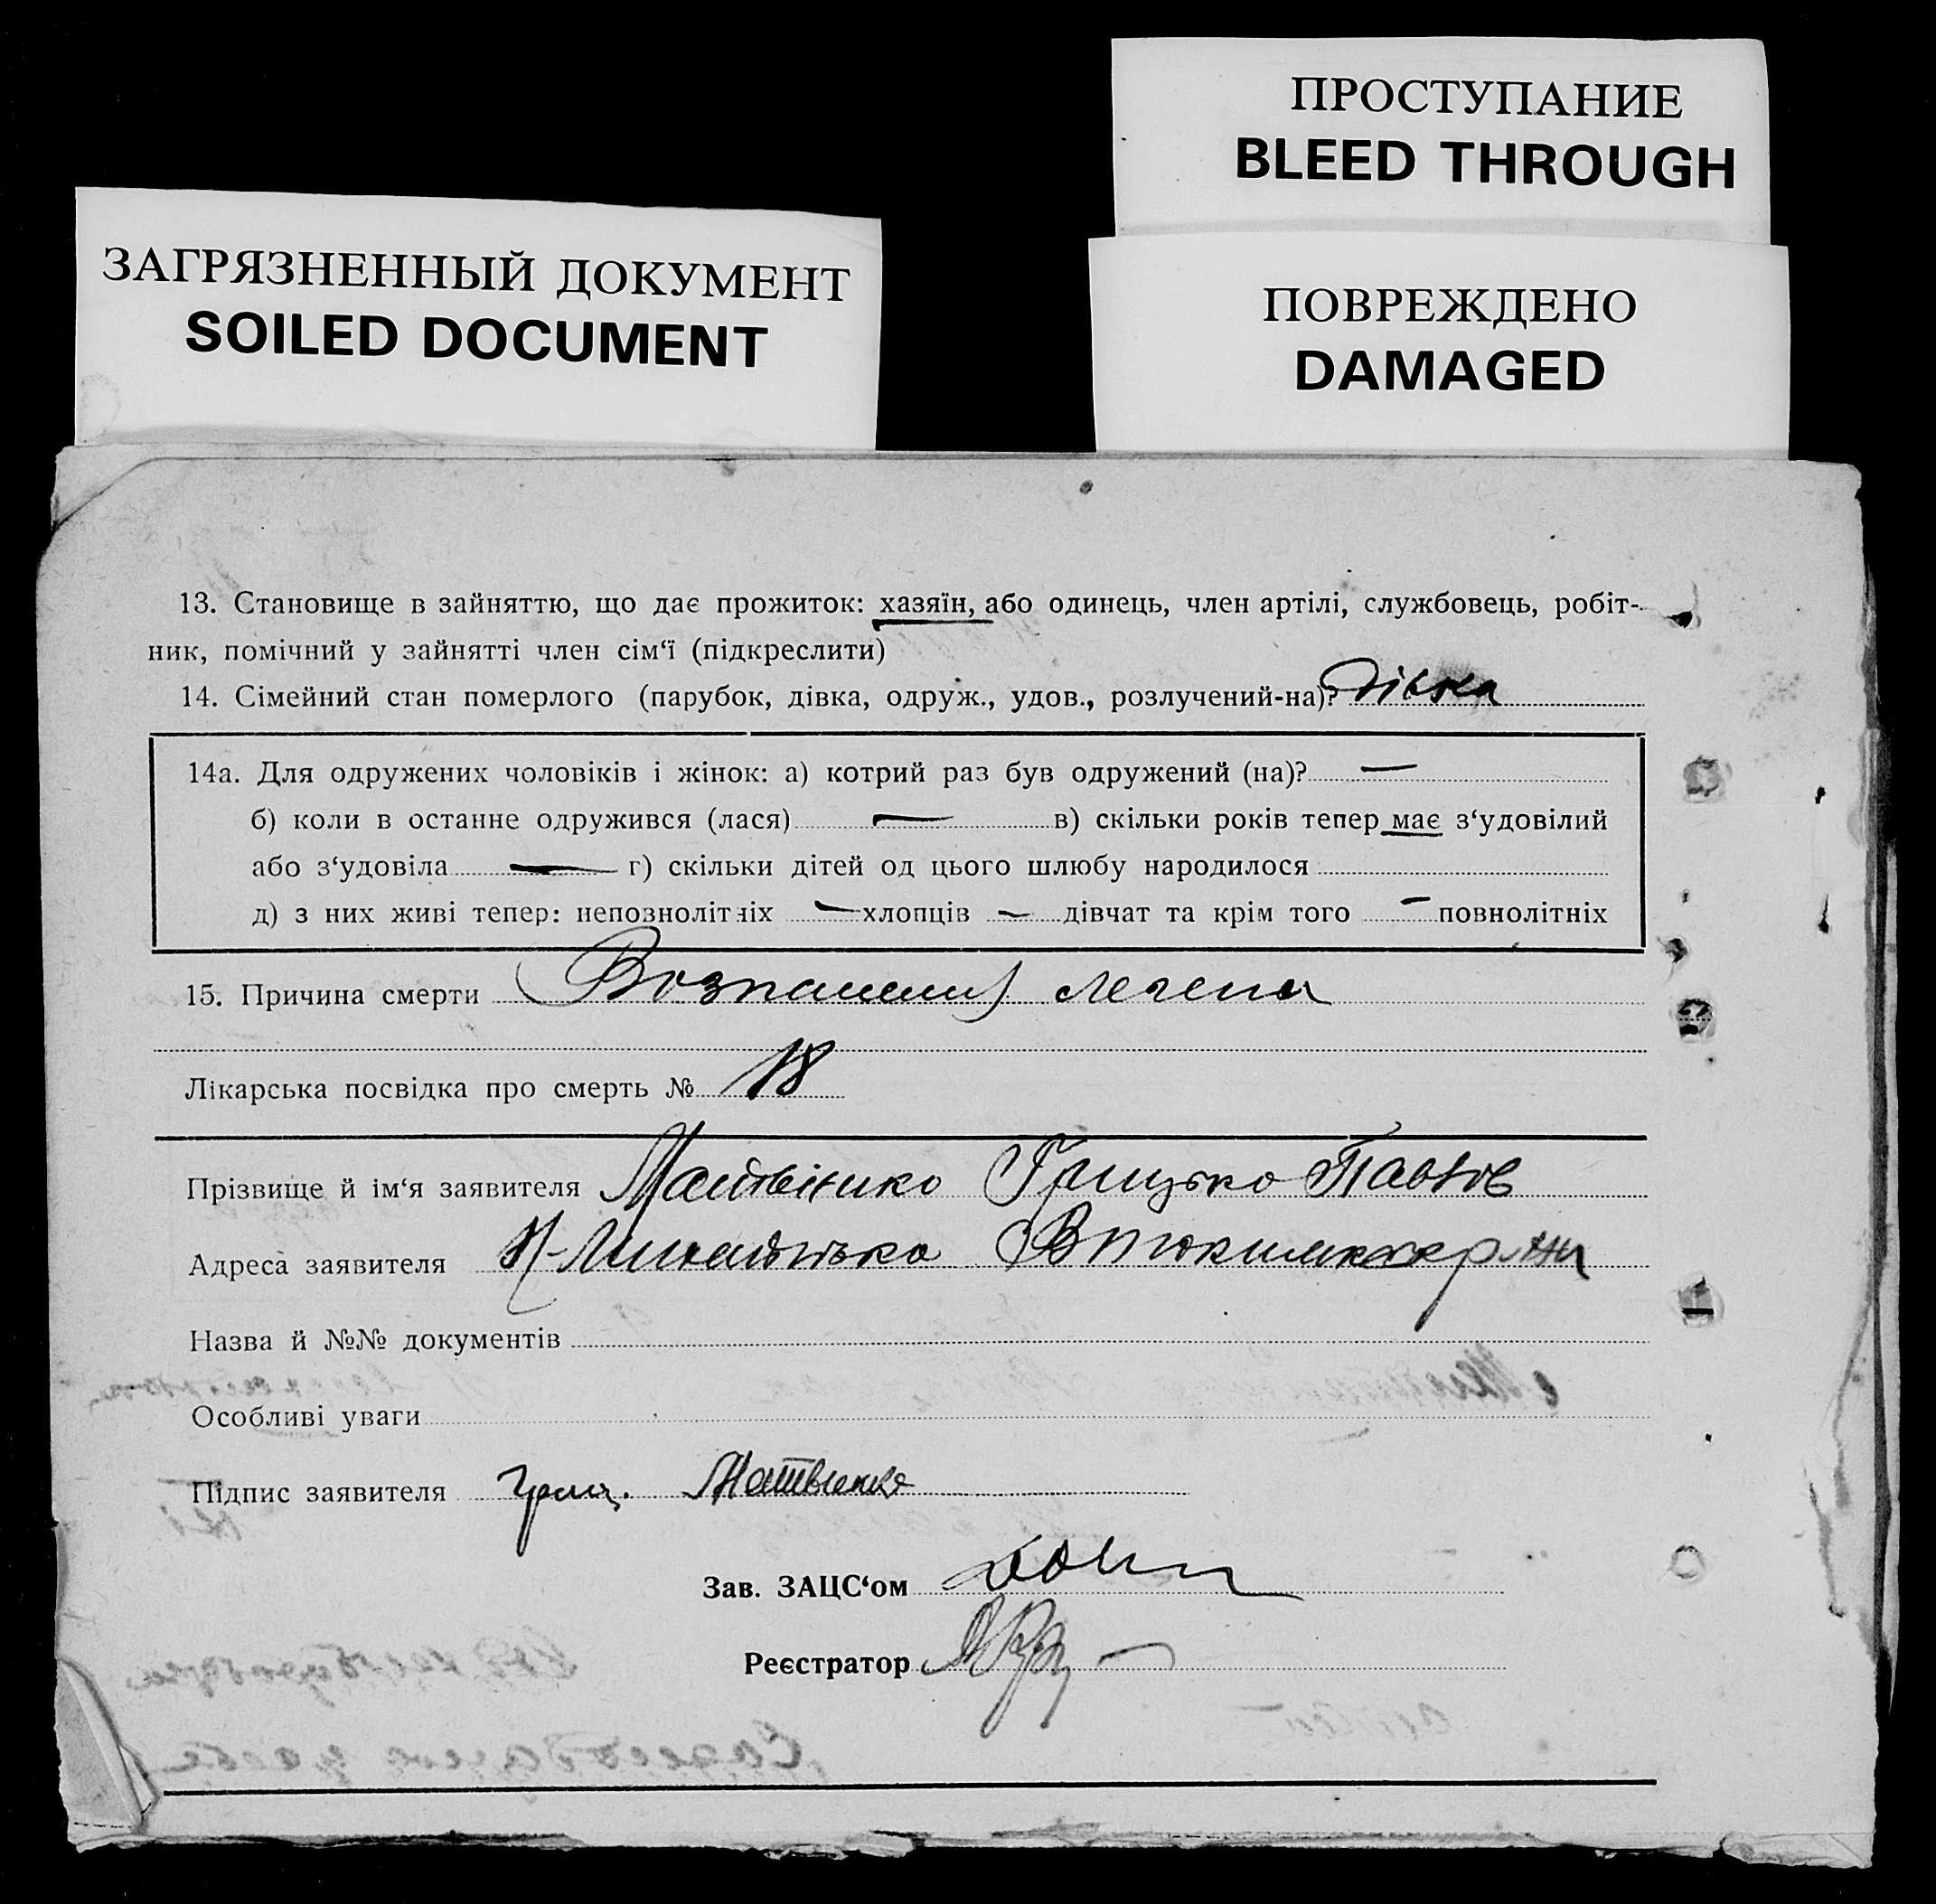 ПРОСТУПАНИЕ
BLEED THROUGH
ЗАГРЯЗНЕННЫЙ ДОКУМЕНТ
SOILED DOCUMENT
ПОВРЕЖДЕНО
DAMAGED
13. Становище в зайняттю, що дає прожиток: хазяїн, або одинець, член артілі, службовець, робіт-
ник, помічний у зайнятті член сім‘ї (підкреслити)
14. Сімейний стан померлого (парубок, дівка, одруж., удов., розлучений-на)? дівка
14а. Для одружених чоловіків і жінок: а) котрий раз був одружений (на)? —
б) коли в останне одружився (лася) — в) скільки років тепер має з‘удовілий
або з‘удовіла — г) скільки дітей од цього шлюбу народилося
д) з них живі тепер: непознолітніх — хлопців — дівчат та крім того — повнолітніх
15. Причина смерти легень
Лікарська посвідка про смерть № 18
Прізвище й ім‘я заявителя Матвієнко Грицько Павлов
Адреса заявителя
Назва й №№ документів
Особливі уваги
Підпис заявителя Гриц. Матвиенко
Зав. ЗАЦС‘ом
Реєстратор